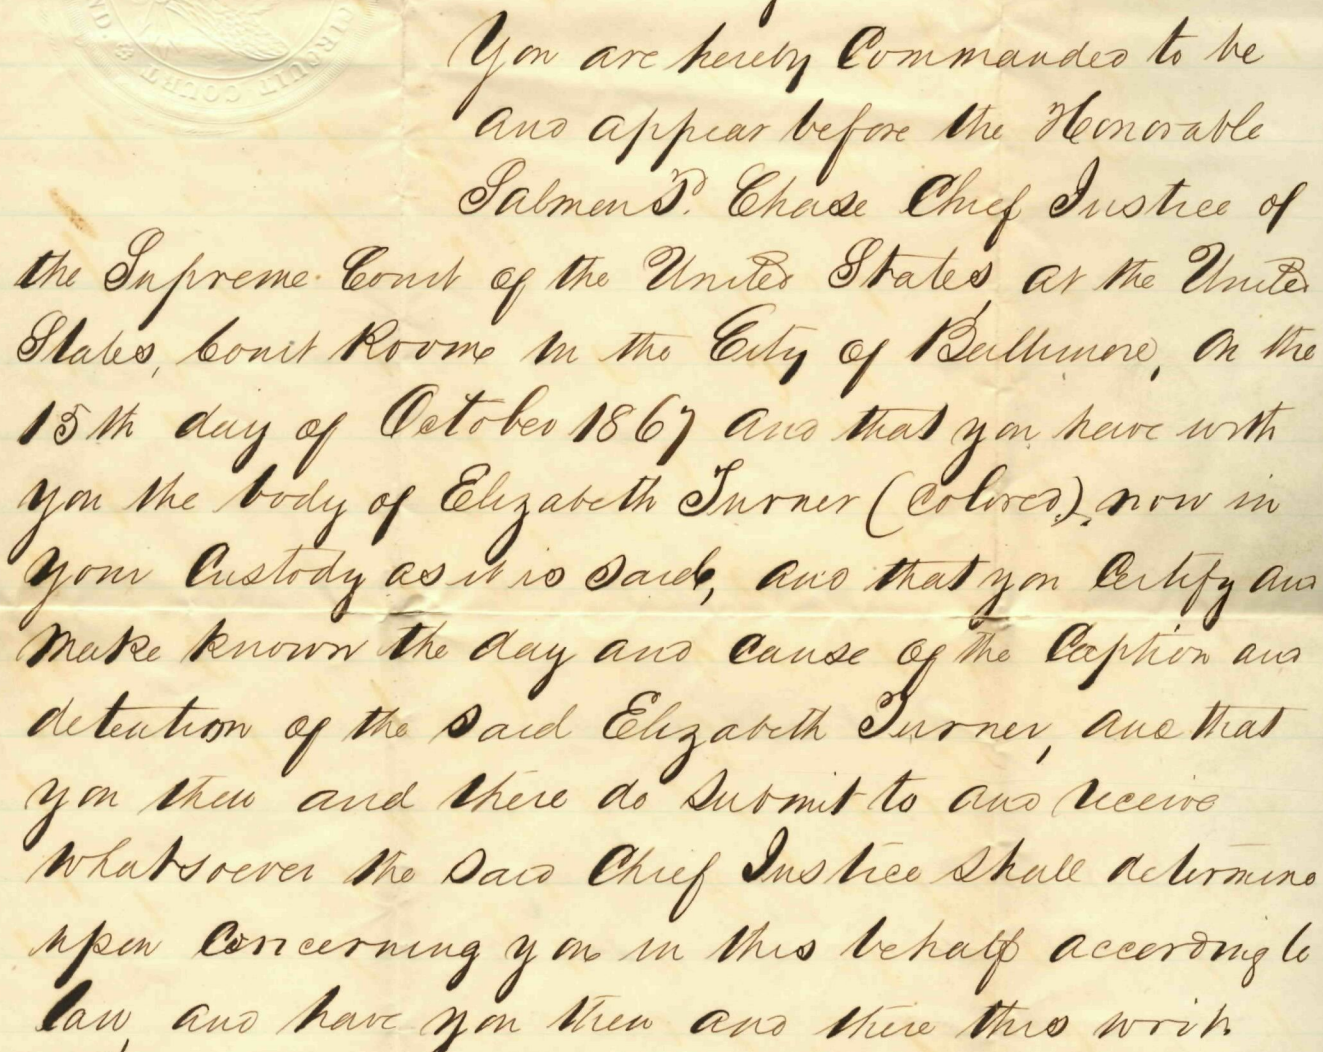 CIRCUIT COURT
You are hereby Commanded to be
and appear before the Honorable
Salmon P. Chase Chief Justice of
the Supreme Court of the United States, at the United
States, Court Room in the City of Baltimore, on the
15th day of October 1867 and that you have with
you the body of Elizabeth Turner (colored), now in
your Custody as it is said, and that you Certify and
make known the day and cause of the Caption and
detention of the said Elizabeth Turner, and that
you then and there do submit to and receive
whatsoever the said Chief Justice shall determine
upon concerning you in this behalf according to
law, and have you then and there this writ.